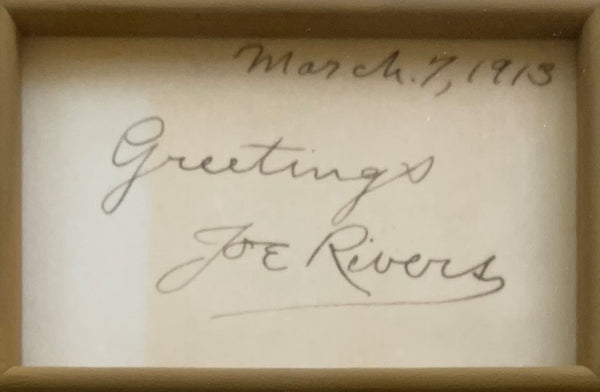 March. 7, 1913
Greetings
Joe Rivers